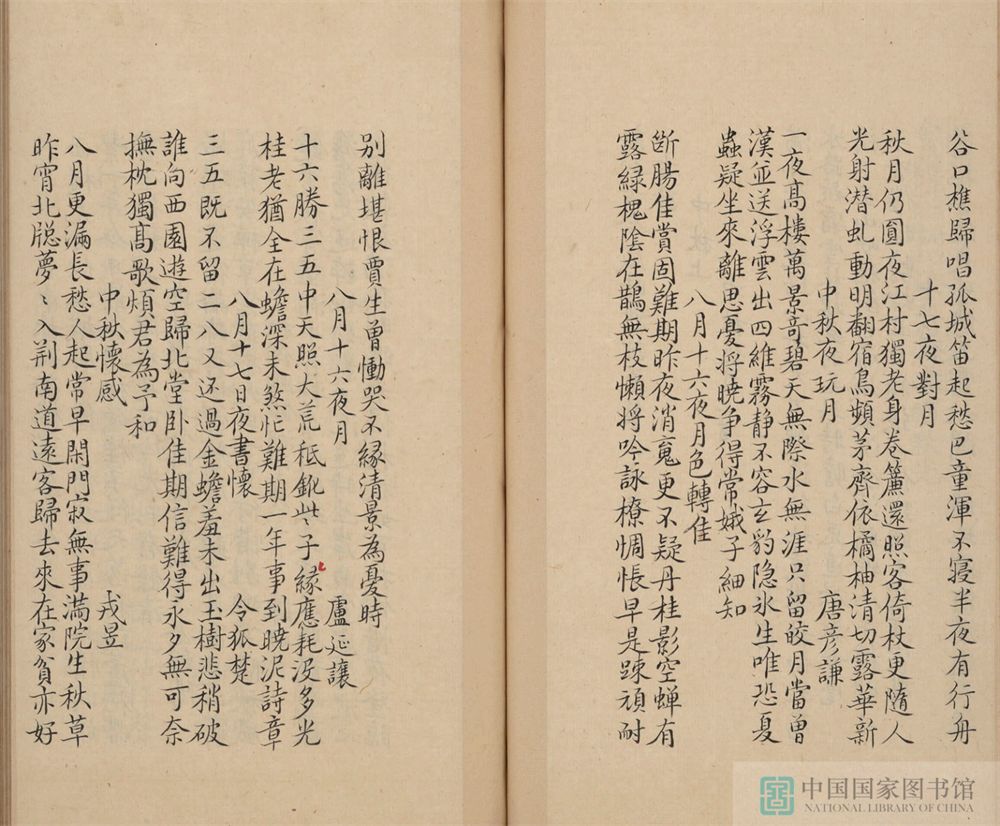 谷口樵歸唱孤城笛起愁巴童渾不寝半夜有行舟
十七夜對月
秋月仍圓夜江村獨老身卷簾還照客倚杖更隨人
光射潜虬動明翻宿鳥頻茅齊依橘柚清切露華新
中秋夜玩月 唐彦謙
一夜髙樓萬景竒碧天無際水無涯只留皎月當曽
漢並送浮雲出四維霧静不容玄豹隐氷生唯恐夏
蟲疑坐來離思憂將曉争得常娥子細知
八月十六夜月色轉佳
断腸佳賞固難期昨夜消䰟更不疑丹桂影空蟬有
露緑槐陰在鵲無枝懶將吟詠橑惆悵早是踈頑耐
别離堪恨賈生曽慟哭不縁清景為憂時
八月十六夜月 盧延讓
十六勝三五中天照大荒秪鈋些子縁應耗没多光
桂老猶全在蟾深未煞忙難期一年事到曉泥詩章
八月十七日夜書懷 令狐楚
三五既不留二八又还過金蟾羞未出玉樹悲稍破
誰向西園遊空歸北堂卧佳期信難得永夕無可奈
撫枕獨髙歌煩君為予和
中秋懷感 戎昱
八月更漏長愁人起常早閑門寂無事滿院生秋草
昨宵北牕夢〻入荆南道遠客歸去來在家貧亦好
中国国家图书馆
NATIONAL LIBRARY OF CHINA